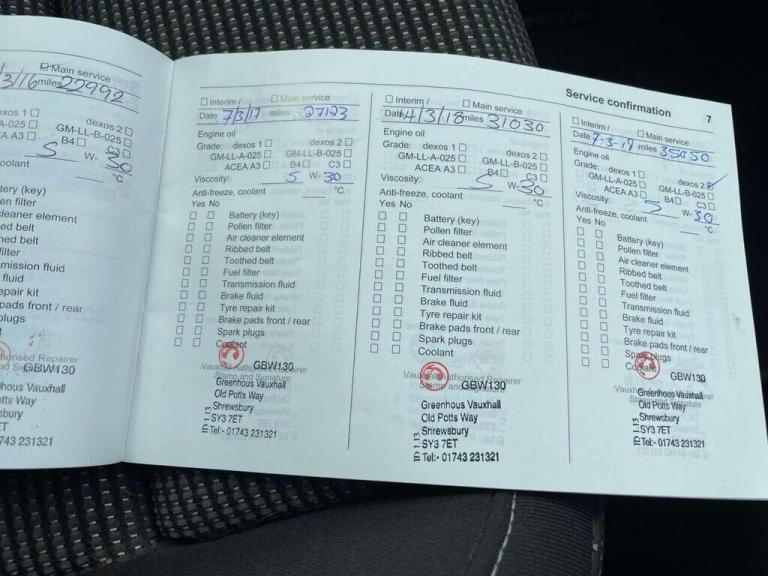 Main service
3/16 miles 22992
exos 1
dexos 2
A-025
GM-LL-B-025
EA A3
B4
C3
S W-30
oolant
°C
tery (key)
en filter
cleaner element
ed belt
hed belt
filter
mission fluid
fluid
epair kit
pads front / rear
plugs
t
horised Repairer
GBW130
hous Vauxhall
tts Way
sbury
743 231321
Interim /
Main service
Date 7/3/17 miles 27123
Engine oil
Grade: dexos 1
dexos 2
GM-LL-A-025
GM-LL-B-025
ACEA A3
B4
C3
Viscosity: 5 W-30
Anti-freeze, coolant °C
Yes No
Battery (key)
Pollen filter
Air cleaner element
Ribbed belt
Toothed belt
Fuel filter
Transmission fluid
Brake fluid
Tyre repair kit
Brake pads front / rear
Spark plugs
Coolant
GBW130
Vauxhall Authorised Repairer
Stamp and Signature
Greenhous Vauxhall
Old Potts Way
Shrewsbury
SY3 7ET
Tel:- 01743 231321
Interim /
Main service
Date 4/3/18 miles 31030
Engine oil
Grade: dexos 1
dexos 2
GM-LL-A-025
GM-LL-B-025
ACEA A3
B4
C3
Viscosity: 5 W-30
Anti-freeze, coolant °C
Yes No
Battery (key)
Pollen filter
Air cleaner element
Ribbed belt
Toothed belt
Fuel filter
Transmission fluid
Brake fluid
Tyre repair kit
Brake pads front / rear
Spark plugs
Coolant
GBW130
Vauxhall Authorised Repairer
Stamp and Signature
Greenhous Vauxhall
Old Potts Way
Shrewsbury
SY3 7ET
Tel:- 01743 231321
Service confirmation
7
Interim /
Main service
Date 7-3-19 miles 35050
Engine oil
Grade: dexos 1
dexos 2
GM-LL-A-025
GM-LL-B-025
ACEA A3
B4
C3
Viscosity: 5 W-30
Anti-freeze, coolant °C
Yes No
Battery (key)
Pollen filter
Air cleaner element
Ribbed belt
Toothed belt
Fuel filter
Transmission fluid
Brake fluid
Tyre repair kit
Brake pads front / rear
Spark plugs
Coolant
GBW130
Vauxhall Authorised Repairer
Stamp and Signature
Greenhous Vauxhall
Old Potts Way
Shrewsbury
SY3 7ET
Tel:- 01743 231321